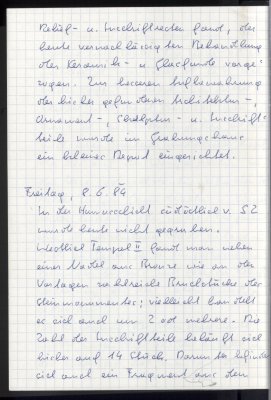 Relief- u. Inschriftresten fand, der
heute vernachlässigten Behandlung
der Keramik- u. Glasfunde vorge-
zogen. Zur besseren Aufbewahrung
der bisher gefundenen Architektur-,
Ornament-, Skulptur- u. Inschrift-
teile wurde im Grabungshaus
ein kleines Depot eingerichtet.
Freitag, 8.6.84
In der Humusschicht südöstlich v. S2
wurde heute nicht gegraben.
Westlich Tempel II fand man neben
einer Nadel aus Bronze wie an den
Vortagen zahlreiche Bruchstücke der
Steinmonumente; vielleicht handelt
es sich auch um 2 od. mehrere. Die
Zahl der Inschriftteile beläuft sich
bisher auf 14 Stück. Darunter befindet
sich auch ein Fragment aus dem